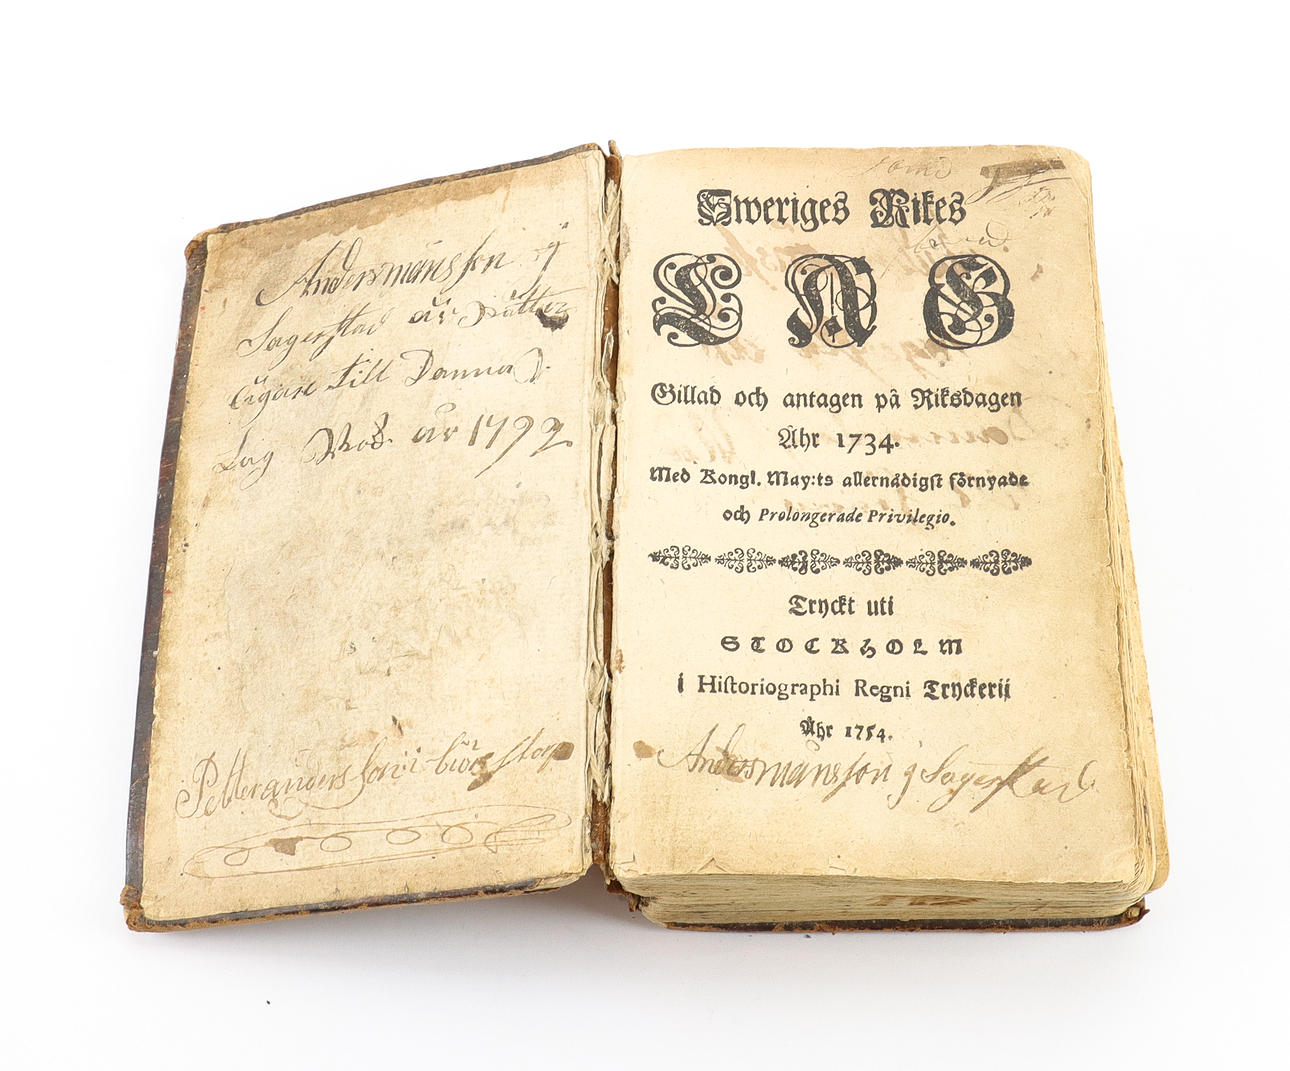 Andersmånsson j
Sagerstad är Rätter
ägare till Denna
Lag Bok år 1792
Petter anders son i
Sweriges Rikes
LAG
Gillad och antagen på Riksdagen
Åhr 1734.
Med Kongl. May:ts allernådigst förnyade
och Prolongerade Privilegio.
Tryckt uti
STOCKHOLM
i Historiographi Regni Tryckerij
Åhr 1754.
Andersmånsson j Sagerstad